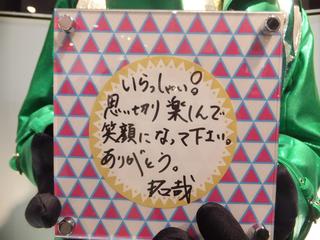 いらっしゃい。
思い切り楽しんで
笑顔になって下さい。
ありがとう。
拓哉